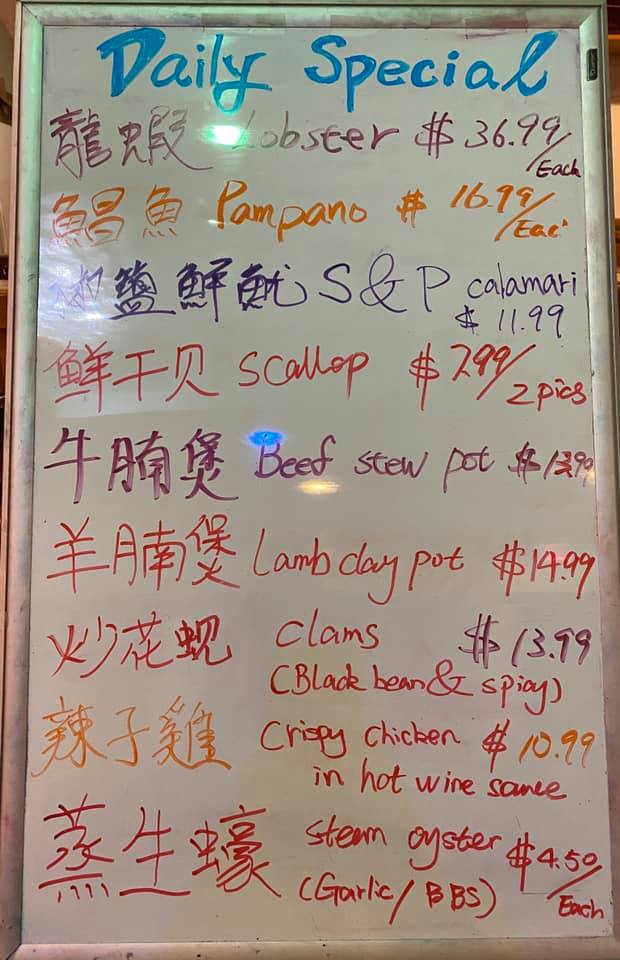 Daily Special
龍蝦 Lobster $ 36.99/Each
鯧魚 Pampano $ 16.99/Eac
椒鹽鮮魷 S&P calamari
$ 11.99
鲜干贝 Scallop $ 7.99/2 pics
牛腩煲 Beef stew pot $ 13.99
羊腩煲 Lamb clay pot $14.99
炒花蚬 Clams $ 13.99
(Black bean & spicy)
辣子雞 Crispy chicken $ 10.99
in hot wine sauce
蒸生蠔 Steam oyster $4.50/Each
(Garlic/BBS)